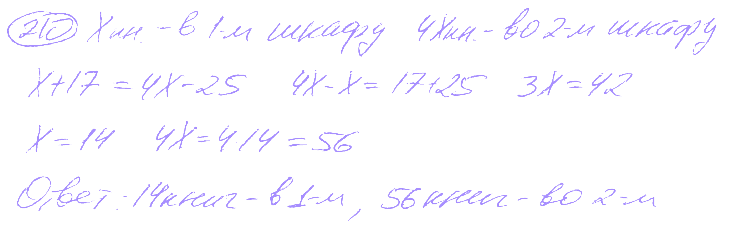 210 Xкн. - в 1-м шкафу 4Xкн. - во 2-м шкафу
X+17 = 4X-25 4X-X = 17+25 3X = 42
X = 14 4X = 4·14 = 56
Ответ: 14 книг - в 1-м, 56 книг - во 2-м